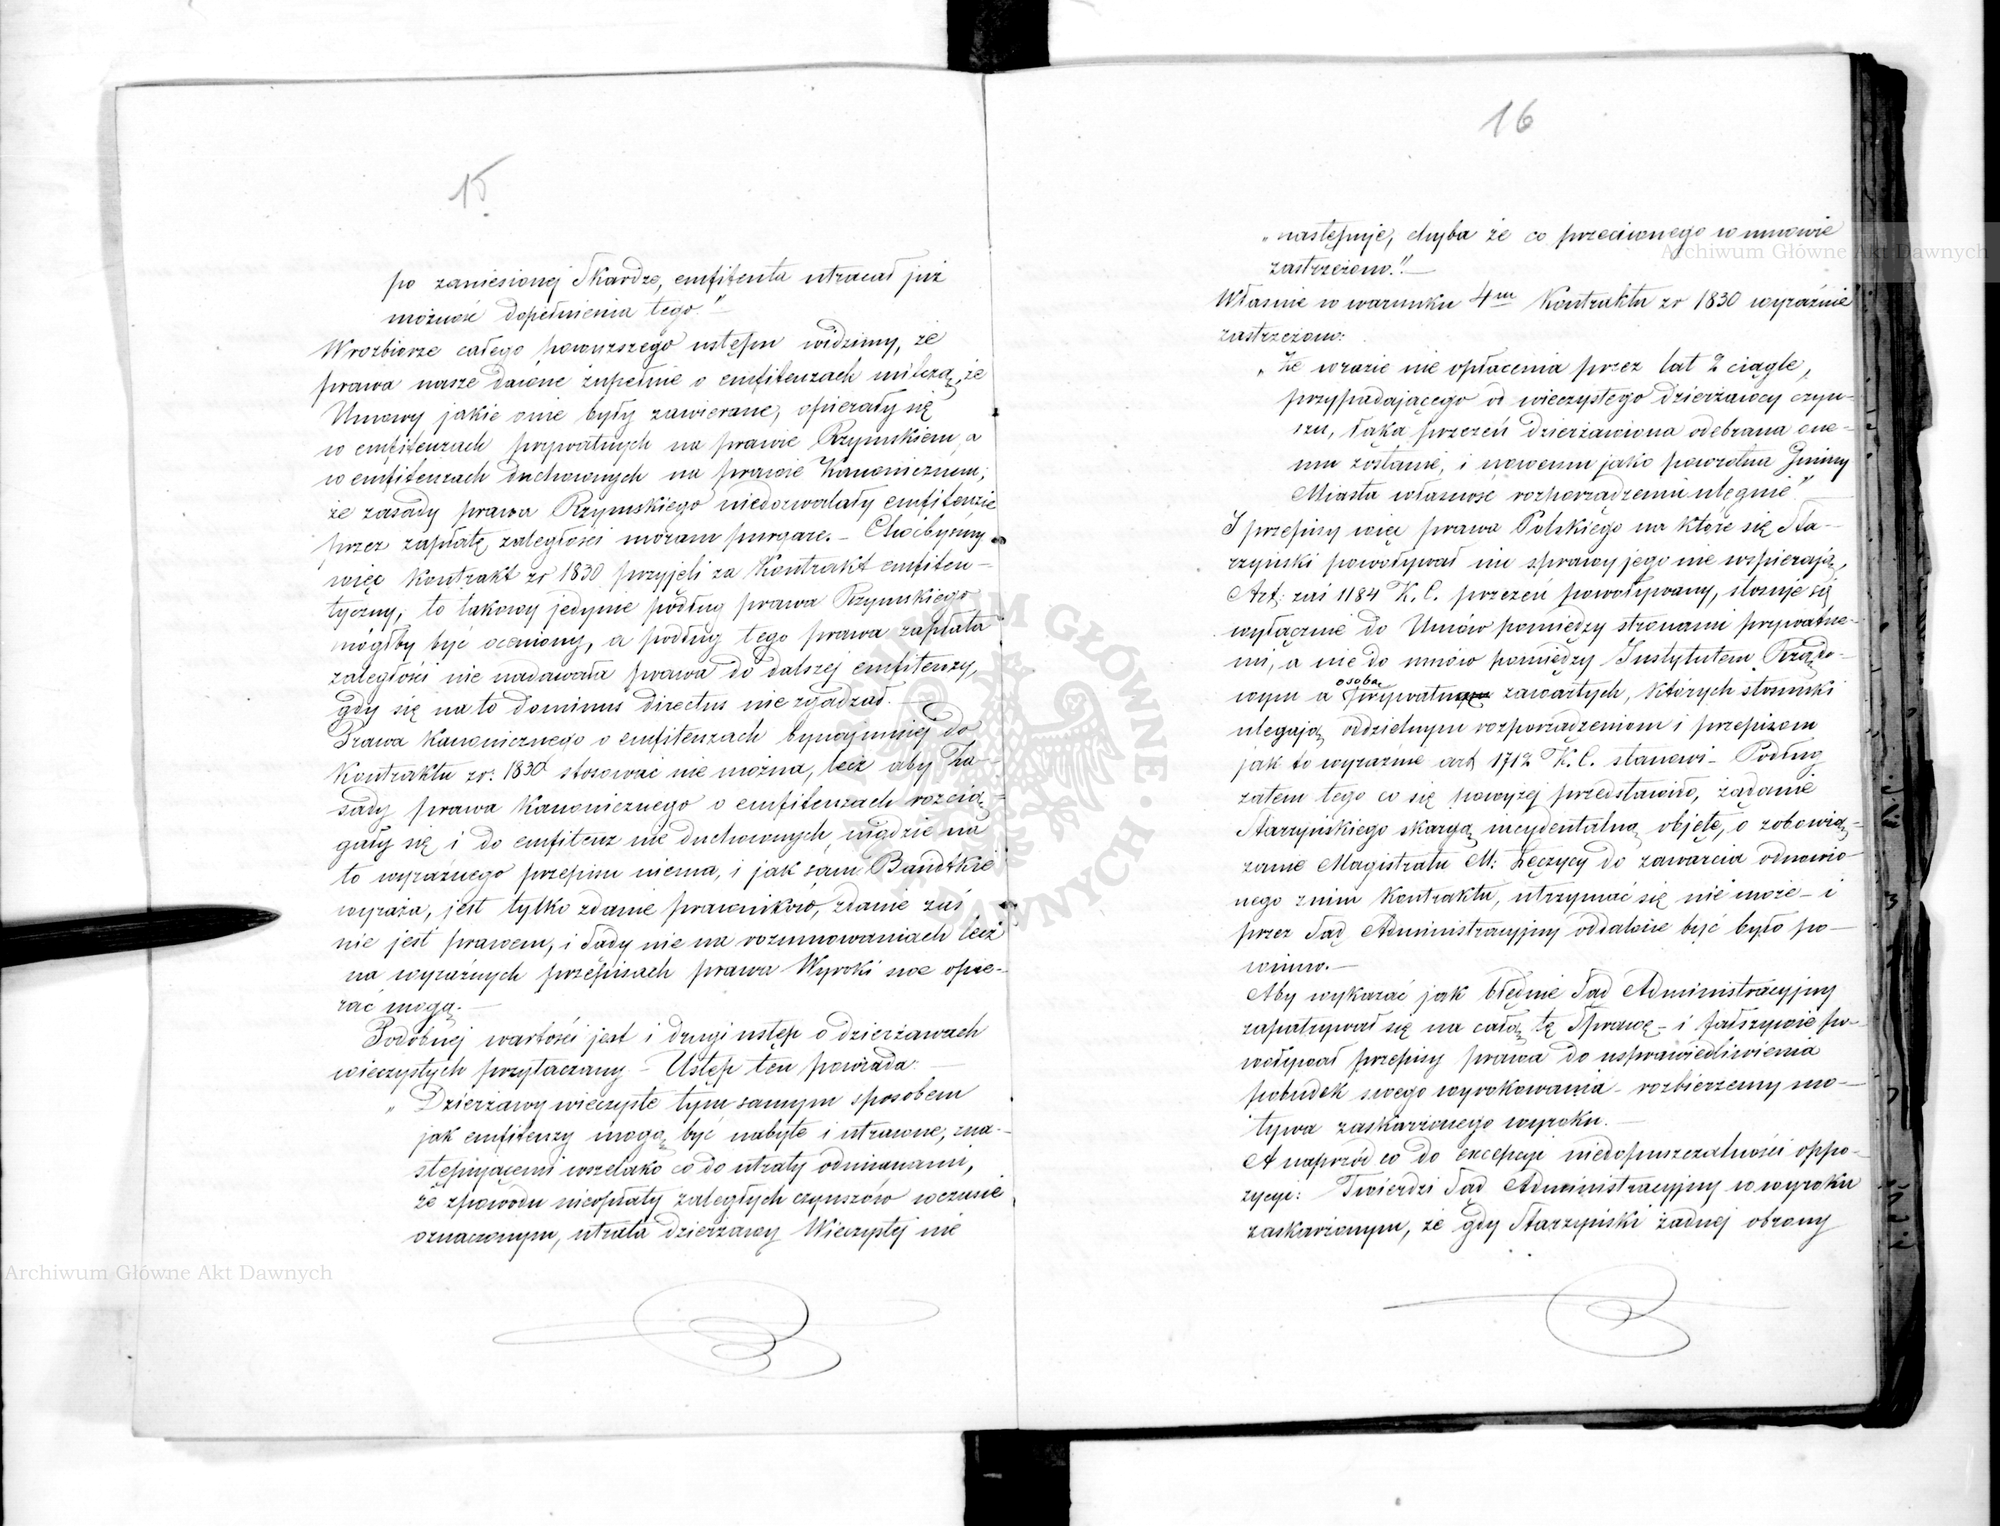 15
po zaniesionej Skardze, emfiteuta utracał już
możność dopełnienia tego."—
W rozbiorze całego powyższego ustępu widzimy, że
prawa nasze dawne zupełnie o emfiteuzach milczą, że
Umowy jakie onie były zawierane, opierały się
w emfiteuzach prywatnych na prawie Rzymskiem, a
w emfiteuzach duchownych na prawie Kanonicznem;
że zasady prawa Rzymskiego niedozwalały emfiteuzie
przez zapłatę zaległości moram purgare.— Choćbyśmy
więc Kontrakt z r 1830 przyjęli za Kontrakt emfiteu-
tyczny, to takowy jedynie podług prawa Rzymskiego
mógłby być oceniony, a podług tego prawa zapłata
zaległości nie nadawała prawa do dalszej emfiteuzy,
gdy się na to dominus directus nie zgadzał.—
Prawa Kanonicznego o emfiteuzach bynajmniej do
Kontraktu z r: 1830 stosować nie można, lecz aby Za-
sady prawa Kanonicznego o emfiteuzach rozcią-
gały się i do emfiteuz nie duchownych, nigdzie na
to wyraźnego przepisu niema, i jak sam Bandtkie
wyraża, jest tylko zdanie prawników, zdanie zaś
nie jest prawem, i Sądy nie na rozumowaniach lecz
na wyraźnych przepisach prawa Wyroki swe opie-
rać mogą.—
Podobnej wartości jest i drugi ustęp o dzierżawach
wieczystych przytaczany – Ustęp ten powiada:—
„Dzierżawy wieczyste tym samym sposobem
jak emfiteuzy mogą być nabyte i utracone, z na-
stępującemi wszelako co do utraty odmianami,
że z powodu nieopłaty zaległych czynszów w czasie
oznaczonym, utrata dzierżawy Wieczystej nie
16
„następuje, chyba że co przeciwnego w umowie
zastrzeżono."—
Właśnie w warunku 4m Kontraktu z r 1830 wyraźnie
zastrzeżono:
„Że w razie nie opłacenia przez lat 2 ciągle,
przypadającego od wieczystego dzierżawcy czyn-
szu, łąka przezeń dzierżawiona odebraną one-
mu zostanie, i nowemu jako powrotna Gminy
Miasta własność rozporządzeniu ulegnie"—
I przepisy więc prawa Polskiego na które się Sta-
rzyński powoływał im sprawy jego nie wspierają,
Art: zaś 1184 K. C. przezeń powoływany, stosuje się
wyłącznie do Umów pomiędzy stronami prywatne-
mi, a nie do umów pomiędzy Instytutem Rządo-
wym a osobą prywatną zawartych, których stosunki
ulegają oddzielnym rozporządzeniom i przepisom
jak to wyraźnie art 1712 K. C. stanowi – Podług
zatem tego co się powyżej przedstawiło, żądanie
Starzyńskiego skargą incydentalną objęte, o zobowią-
zanie Magistratu M: Łęczycy do zawarcia odnowio-
nego z nim Kontraktu, utrzymać się nie może – i
przez Sąd Administracyjny oddalone być było po-
winno.—
Aby wykazać jak błędnie Sąd Administracyjny
zapatrywał się na całą tę Sprawę – i fałszywie po-
woływał przepisy prawa do usprawiedliwienia
pobudek swego wyrokowania – rozbierzemy mo-
tywa zaskarżonego wyroku.—
A naprzód co do excepcji niedopuszczalności oppo-
zycyi: Twierdzi Sąd Administracyjny w wyroku
zaskarżonym, że gdy Starzyński żadnej obrony
Archiwum Główne Akt Dawnych
Archiwum Główne Akt Dawnych